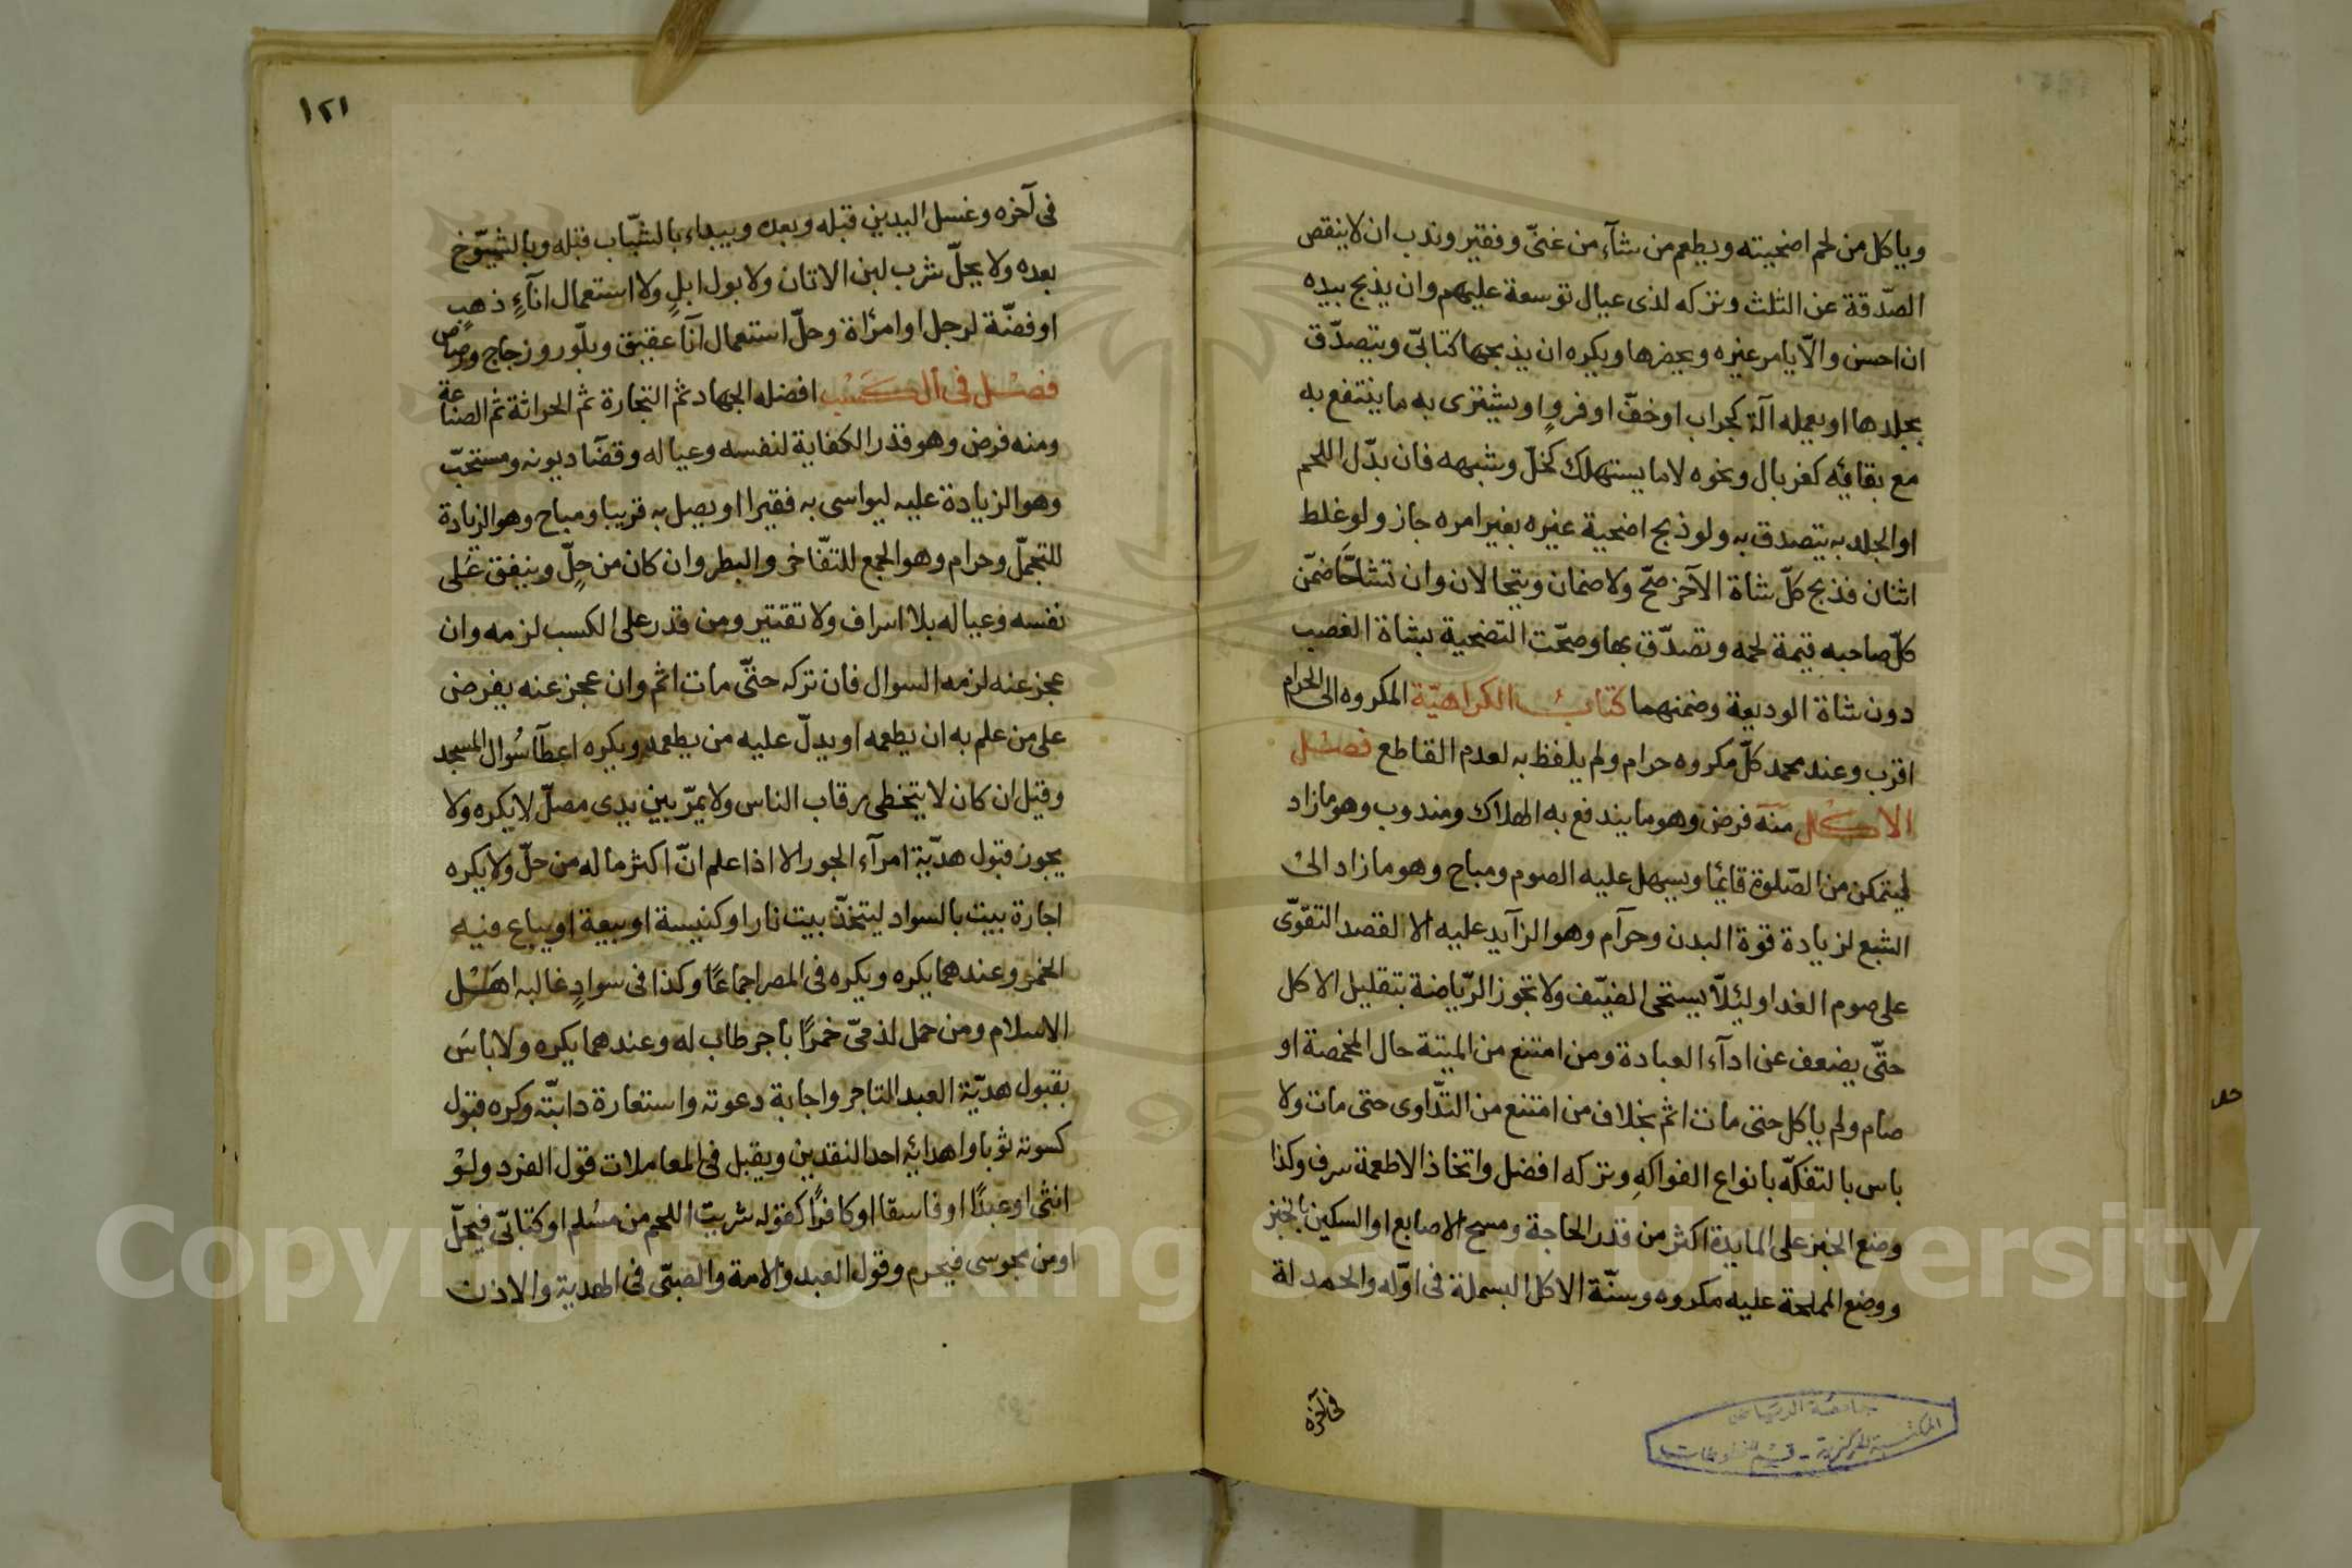 وياكل من لحم اضحيته ويطعم من شآء من غنىّ وفقير وندب ان لا ينقص
الصّدقة عن الثلث وتركه لذى عيال توسعة عليهم وان يذبح بيده
ان احسن والّا يامر غيره ويحضرها ويكره ان يذبحها كتابىّ ويتصدّق
بجلدها او يعمله آلة كجراب او خفّ او فروٍ او يشترى به ما ينتفع به
مع بقائه كغربال ونحوه لا ما يستهلك كخلّ وشبهه فان بدّل اللحم
او الجلد به يتصدق به ولو ذبح اضحية غيره بغير امره جاز ولو غلط
اثنان فذبح كلّ شاة الآخر صحّ ولا ضمان ويتحالان وان تشاحّا ضمّن
كلّ صاحبه قيمة لحمه وتصدّق بها وصحّت التضحية بشاة الغصب
دون شاة الوديعة وضمنهما كتاب الكراهيّة المكروه الى الحرام
اقرب وعند محمد كلّ مكروه حرام ولم يلفظ به لعدم القاطع فصل
الاكل منه فرض وهو ما يندفع به الهلاك ومندوب وهو ما زاد
ليتمكن من الصّلوة قائما ويسهل عليه الصوم ومباح وهو ما زاد الى
الشبع لزيادة قوة البدن وحرآم وهو الزآيد عليه الا لقصد التقوّى
على صوم الغد او لئلّا يستحى الضيّف ولا تجوز الرّياضة بتقليل الاكل
حتّى يضعف عن ادآء العبادة ومن امتنع من الميتة حال المخمصة او
صام ولم ياكل حتى مات اثم بخلاف من امتنع من التّداوى حتى مات ولا
باس بالتفكّه بانواع الفواكهِ وتركه افضل واتخاذ الاطعمة سرف وكذا
وضع الخبز على المايدة اكثر من قدر الحاجة ومسح الاصابع او السكين بالخبز
ووضع المملحة عليه مكروه وسنّة الاكل البسملة فى اوّله والحمدلة
فى آخره
جامعة الرياض
المكتبة المركزية - قسم المخطوطات
١٢١
فى آخره وغسل اليدين قبله وبعده ويبداء بالشّباب قبله وبالشيّوخ
بعده ولا يحلّ شرب لبن الاتان ولا بول ابلٍ ولا استعمال انآءِ ذهبٍ
او فضّة لرجل او امرٔاة وحلّ استعمال آنا عقيق وبلّور وزجاج ورصاص
فصل فى الكسب افضله الجهاد ثم التجارة ثم الحراثة ثم الصناعة
ومنه فرض وهو قدر الكفاية لنفسه وعياله وقضآ ديونه ومستحبّ
وهو الزيادة عليه ليواسى به فقيرا او يصل به قريبا ومباح وهو الزيادة
للتجمّل وحرام وهو الجمع للتفّاخر والبطر وان كان من حِلّ وينفق عَلى
نفسه وعياله بلا اسراف ولا تقتير ومن قدر على الكسب لزمه وان
عجز عنه لزمه السوال فان تركه حتىّ مات اثم وان عجز عنه يفرض
على من علم به ان يطعمه او يدلّ عليه من يطعمه ويكره اعطآ سُوال المسجد
وقيل ان كان لا يتخطى رقاب الناس ولا يمرّ بين يدى مصلّ لا يكره ولا
يجوز قبول هديّة امرآء الجور الا اذا علم انّ اكثر ماله من حلّ ولا يكره
اجارة بيت بالسواد ليتخذّ بيت نار او كنيسة او بيعة او يباع فيه
الخمر وعندهما يكره ويكره فى المصر اجماعًا وكذا فى سوادٍ غالبه اهَل
الاسلام ومن حمل لذمىّ خمرًا بأجر طاب له وعندهما يكره ولا باسَ
بقبول هديّة العبد التاجر واجابة دعوته واستعارة دابّته وكره قبول
كسوته ثوبا واهدائه احد النقدين ويقبل فى المعاملات قول الفرد ولو
انثى او عبدًا او فاسقا او كافرًا كقوله شريت اللحم من مسُلم او كتابىّ فيحلّ
او من مجوسى فيحرم وقول العبد والامة والصّبى فى الهدية والاذن
Copyright © King Saud University